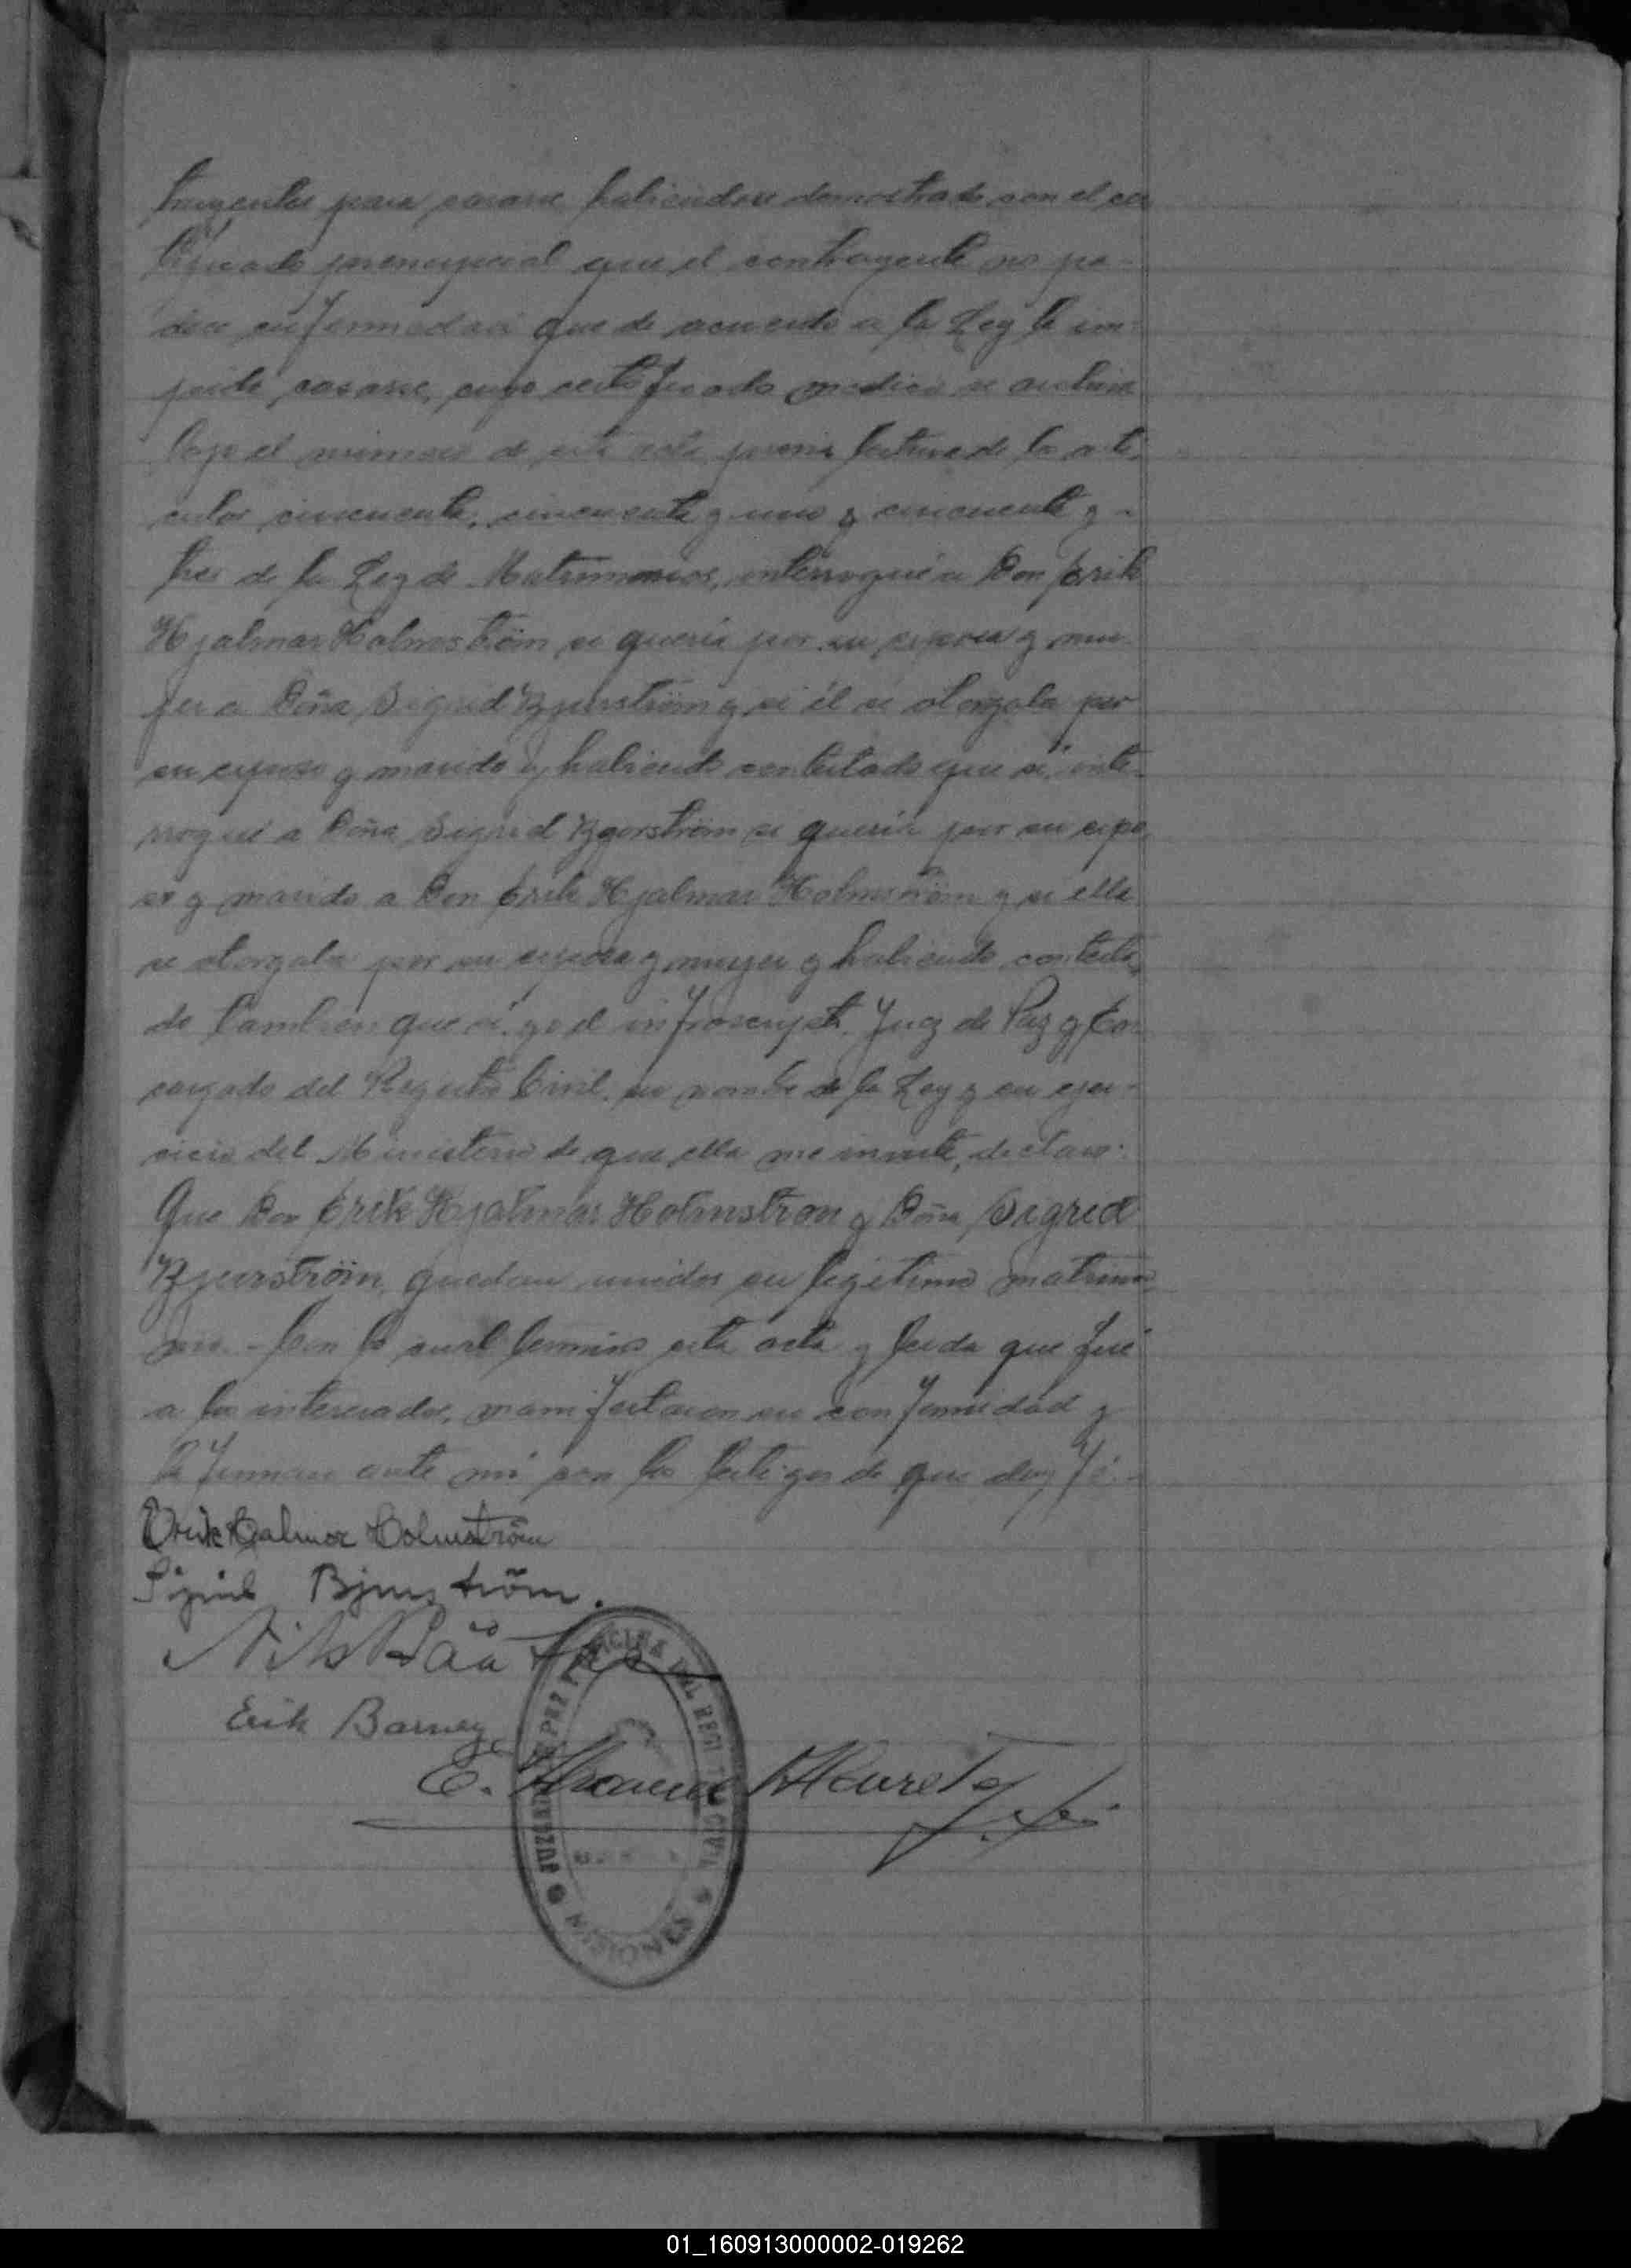 trayentes para casarse habiendose demostrado con el cer
tificado prenupcial que el contrayente no pa-
dece enfermedad que de acuerdo a la Ley le im-
pida casarse, cuyo certificado médico se archiva
bajo el número de esta acta, previa lectura de los artí-
culos cincuenta, cincuenta y uno y cincuenta y -
tres de la Ley de Matrimonios, interrogué a Don Erik
Hjalmar Holmström si quería por su esposa y mu-
jer a Doña Sigrid Bjurström y si él se otorgaba por
su esposo y marido y habiendo contestado que sí, inte-
rrogué a Doña Sigrid Bjurström si quería por su espo-
so y marido a Don Erik Hjalmar Holmström y si ella
se otorgaba por su esposa y mujer y habiendo contesta-
do tambien que sí, yo el infrascripto, Juez de Paz y En
cargado del Registro Civil, en nombre de la Ley y en ejer-
cicio del Ministerio de que ella me inviste, declaro:
Que Don Erik Hjalmar Holmstrom y Doña Sigrid
Bjurström, quedan unidos en legítimo matrimo-
nio. - Con lo cual termino esta acta y leida que fué
a los interesados, manifestaron su conformidad y
la firman ante mí con los testigos de que doy fé.-
Erik Hjalmar Holmström
Sigrid Bjurström.
Nils
Erik Barney
E.
JUZGADO DE PAZ Y OFICINA DEL REGISTRO CIVIL
MISIONES
01_160913000002-019262